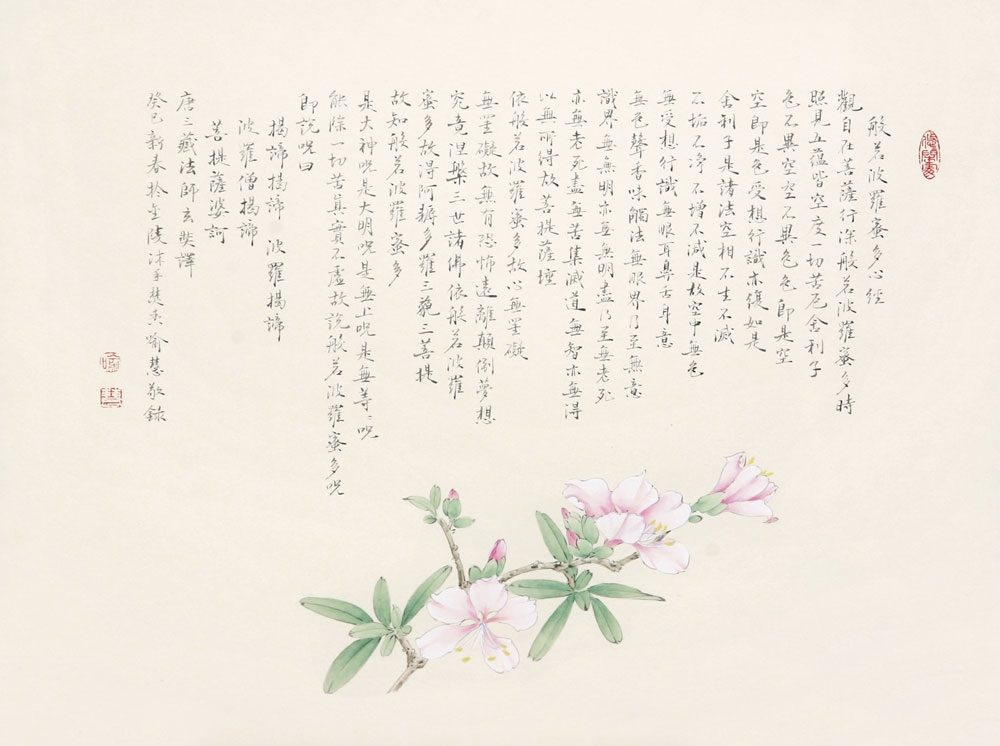 般若波羅蜜多心經
觀自在菩薩行深般若波羅蜜多時
照見五蘊皆空度一切苦厄舍利子
色不異空空不異色色即是空
空即是色受想行識亦復如是
舍利子是諸法空相不生不滅
不垢不淨不增不減是故空中無色
無受想行識無眼耳鼻舌身意
無色聲香味觸法無眼界乃至無意
識界無無明亦無無明盡乃至無老死
亦無老死盡無苦集滅道無智亦無得
以無所得故菩提薩埵
依般若波羅蜜多故心無罣礙
無罣礙故無有恐怖遠離顛倒夢想
究竟涅槃三世諸佛依般若波羅
蜜多故得阿耨多羅三藐三菩提
故知般若波羅蜜多
是大神呪是大明呪是無上呪是無等、呪
能除一切苦真實不虛故說般若波羅蜜多呪
即說呪曰
揭諦揭諦 波羅揭諦
波羅僧揭諦
菩提薩婆訶
唐三藏法師玄奘譯
癸巳新春於金陵沐手焚香喻慧敬錄
喻
慧